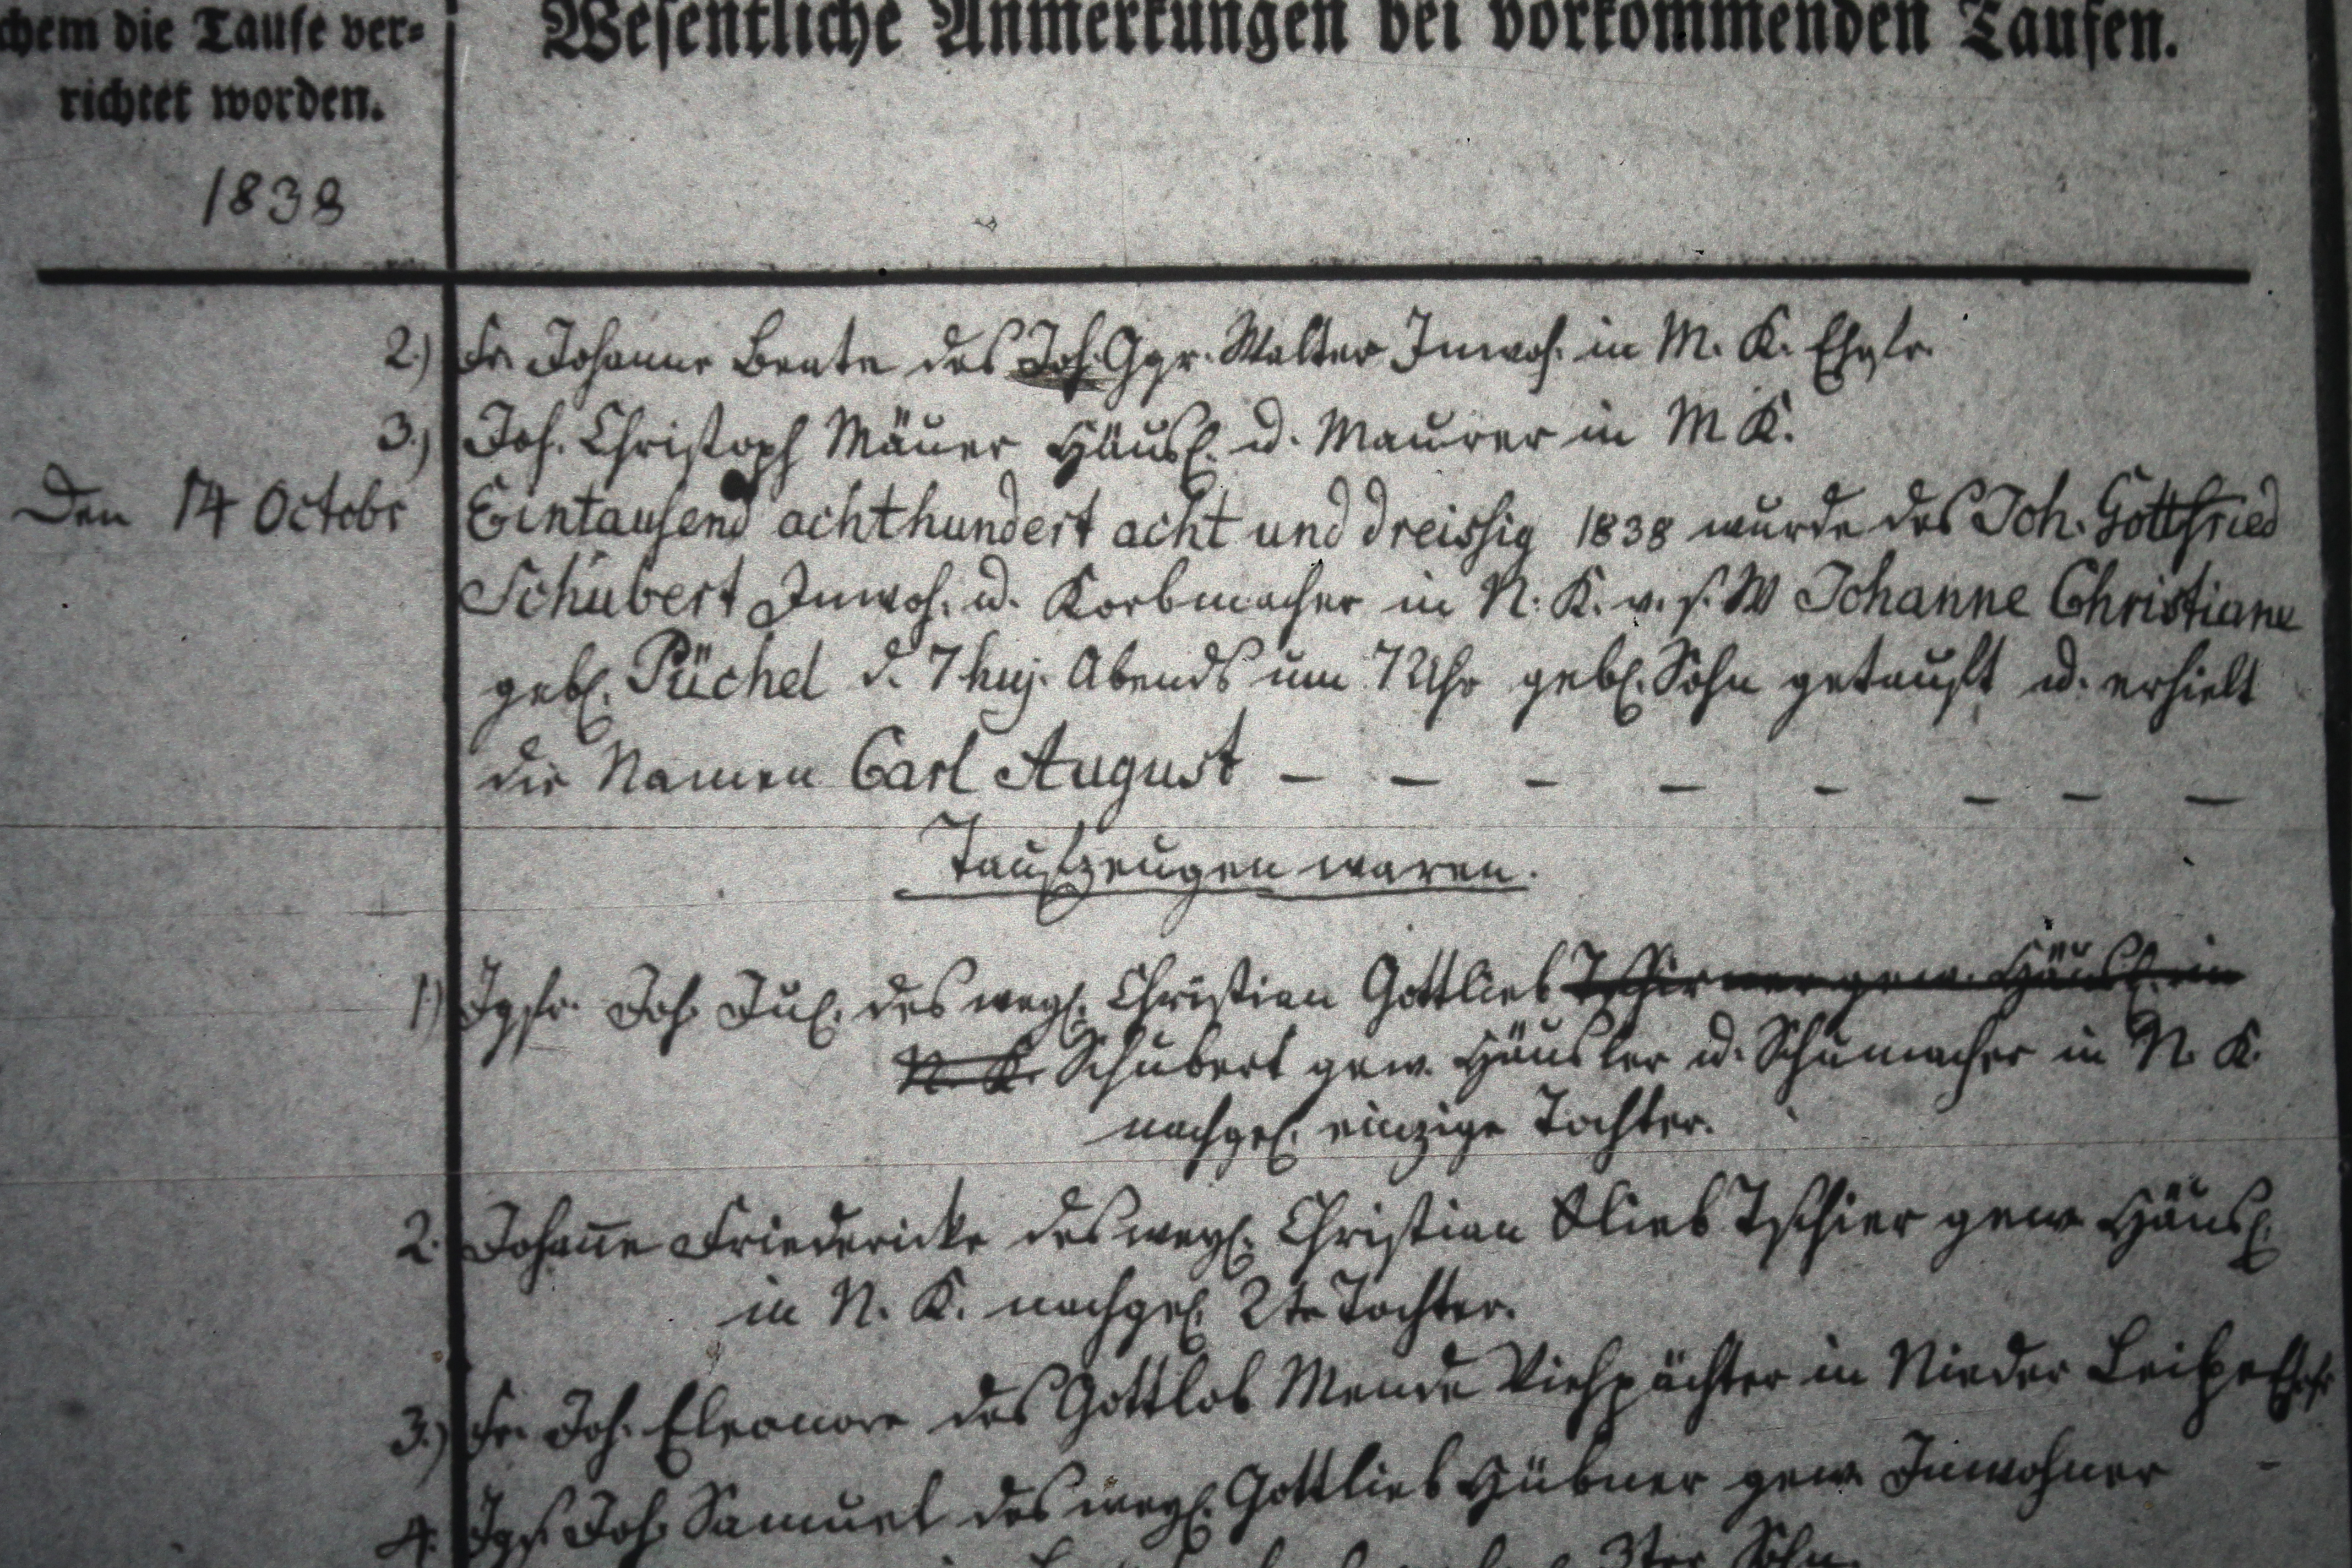 chem die Taufe ver=
richtet worden.
Wesentliche Anmerkungen bei vorkommenden Taufen.
1838
2.) Fr. Johanne Beate des Joh. Ggr. Walter Inwoh. in M. K. Ehgtr.
3.) Joh. Christoph Mäuer Häusl. u. Maurer in M K.
Den 14 Octobr Eintausend achthundert acht und dreissig 1838 wurde des Joh. Gottfried
Schubert Inwoh. u. Korbmacher in N. K. v. s. W Johanne Christiane
gebl. Püchel d. 7 huj. Abends um 7 Uhr gebl. Sohn getauft u. erhielt
die Namen Carl August – – – – – – – –
Taufzeugen waren.
1.) Jgfr. Joh. Jul. des wegl. Christian Gottlieb Tschirner gew. Häusl. in
N. K. Schubert gew. Häusler u. Schumacher in N. K.
nachgel. einzige Tochter.
2. Johanne Friedericke des wegl. Christian Glieb Tschier gew. Häusl.
in N. K. nachgel. 2te Tochter.
3.) Fr. Joh. Eleonore des Gottlob Mende Viehpächter in Nieder Leipe
4. Jgs. Joh. Samuel des wegl. Gottlieb Hübner gew. Inwohner –
3ter Sohn